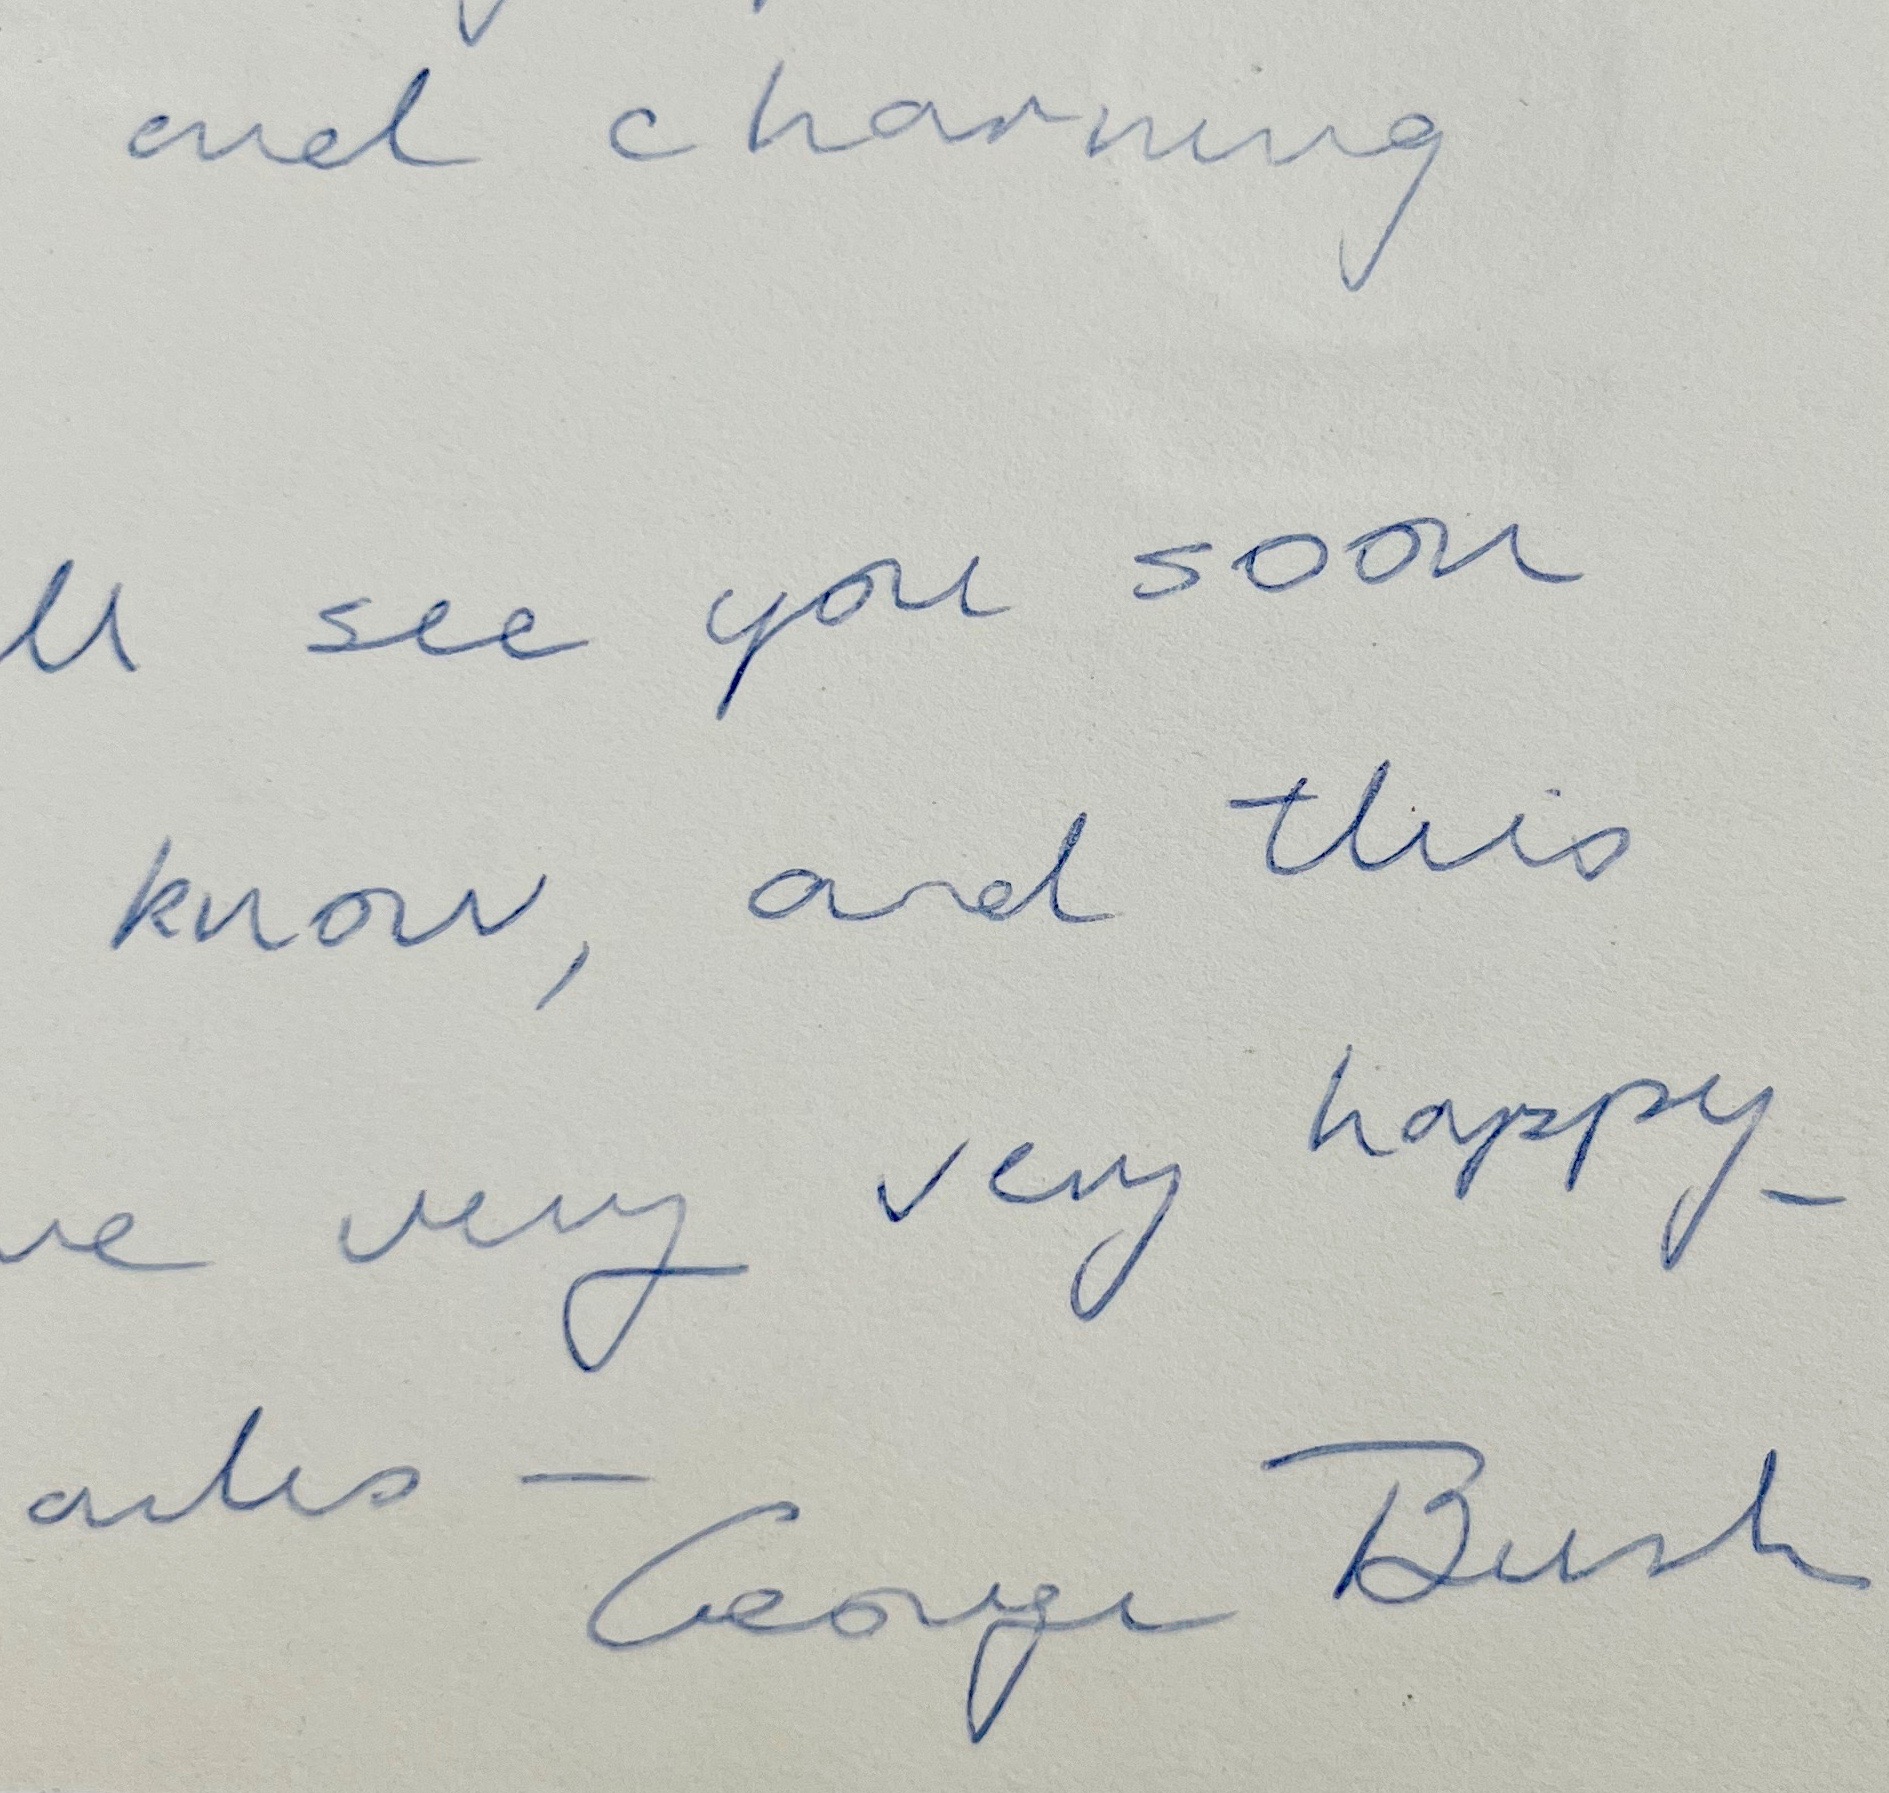 and charming
ll see you soon
know, and this
ve very very happy -
George Bush